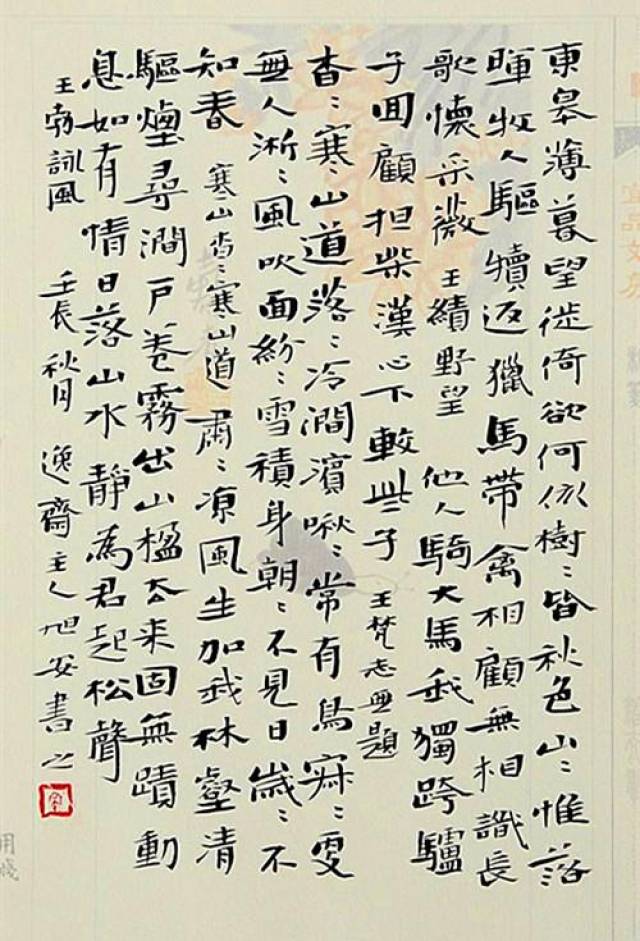 東皋薄暮望徙倚欲何依樹〻皆秋色山〻惟落
暉牧人驅犢返獵馬帶禽相顧無相識長
歌懷采薇 王績野望 他人騎大馬我獨跨驢
子回顧担柴漢心下較些子 王梵志無題
杳〻寒山道落〻冷澗濱啾〻常有鳥寂〻更
無人淅〻風吹面紛〻雪積身朝〻不見日歲〻不
知春 寒山杳〻寒山道 肅〻涼風生加我林壑清
驅煙尋澗戶卷霧出山楹去來固無蹟動
息如有情日落山水靜為君起松聲
王勃詠風 壬辰秋月 逸齋主人旭安書之